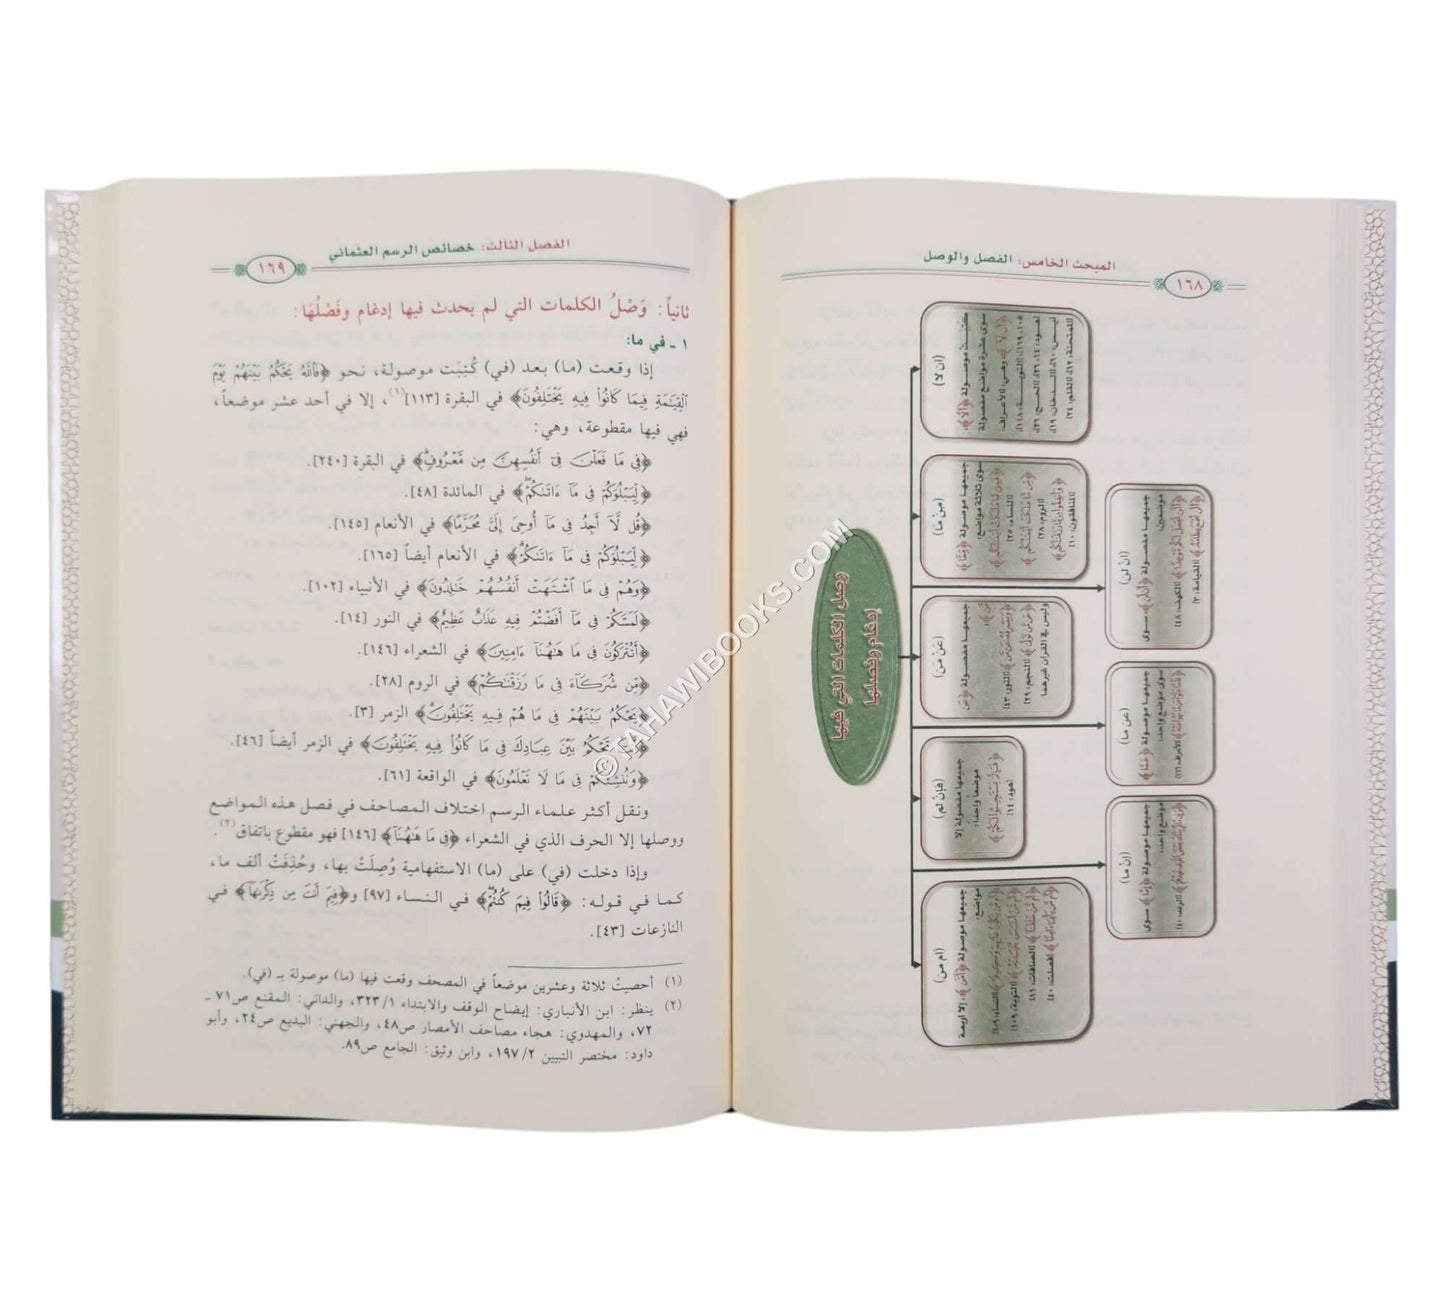 المبحث الخامس: الفصل والوصل
١٦٨
وصل الكلمات التي فيها
إدغام وفصلها
(أن لا)
كتبت موصولة ﴿أَلَّا﴾،
سوى عشرة مواضع مفصولة
﴿أَن لَّا﴾ وهي: الأعراف:
١٠٥، ١٦٩، التوبة: ١١٨،
هود: ١٤، ٢٦، الحج: ٢٦،
يس: ٦٠، الدخان: ١٩،
الممتحنة: ١٢، القلم: ٢٤.
(مِنْ مَا)
جميعها موصولة ﴿مِمَّا﴾
سوى ثلاثة مواضع:
النساء: ٢٥
الروم: ٢٨
المنافقون: ١٠
(عَنْ مَن)
جميعها مفصولة ﴿عَن
مَّن﴾:
النور: ٤٣
النجم: ٢٩
وليس في القرآن غيرهما
(فإن لم)
جميعها مفصولة إلا
موضعاً واحداً:
هود: ١٤
(أم من)
جميعها موصولة ﴿أَمَّن﴾، إلا أربعة
مواضع:
النساء: ١٠٩
التوبة: ١٠٩
الصافات: ١١
فصلت: ٤٠
(أنْ لن)
جميعها مفصولة ﴿أَن لَّن﴾ سوى
موضعين:
الكهف: ٤٨
القيامة: ٣
(عن ما)
جميعها موصولة ﴿عَمَّا﴾
سوى موضع واحد:
الأعراف: ١٦٦
(إنْ ما)
جميعها موصولة ﴿إِمَّا﴾ سوى
موضع واحد:
الرعد: ٤٠
الفصل الثالث: خصائص الرسم العثماني
١٦٩
ثانياً: وَصْلُ الكلمات التي لم يحدث فيها إدغام وفَصْلُهَا:
١ ـ في ما:
إذا وقعت (ما) بعد (في) كُتِبَت موصولة، نحو ﴿فَٱللَّهُ يَحْكُمُ بَيْنَهُمْ يَوْمَ
ٱلْقِيَٰمَةِ فِيمَا كَانُوا۟ فِيهِ يَخْتَلِفُونَ﴾ في البقرة [١١٣](١)، إلا في أحد عشر موضعاً،
فهي فيها مقطوعة، وهي:
﴿فِى مَا فَعَلْنَ فِىٓ أَنفُسِهِنَّ مِن مَّعْرُوفٍ﴾ في البقرة [٢٤٠].
﴿لِّيَبْلُوَكُمْ فِى مَآ ءَاتَىٰكُمْ﴾ في المائدة [٤٨].
﴿قُل لَّآ أَجِدُ فِى مَآ أُوحِىَ إِلَىَّ مُحَرَّمًا﴾ في الأنعام [١٤٥].
﴿لِّيَبْلُوَكُمْ فِى مَآ ءَاتَىٰكُمْ﴾ في الأنعام أيضاً [١٦٥].
﴿وَهُمْ فِى مَا ٱشْتَهَتْ أَنفُسُهُمْ خَٰلِدُونَ﴾ في الأنبياء [١٠٢].
﴿لَمَسَّكُمْ فِى مَآ أَفَضْتُمْ فِيهِ عَذَابٌ عَظِيمٌ﴾ في النور [١٤].
﴿أَتُتْرَكُونَ فِى مَا هَٰهُنَآ ءَامِنِينَ﴾ في الشعراء [١٤٦].
﴿مِّن شُرَكَآءَ فِى مَا رَزَقْنَٰكُمْ﴾ في الروم [٢٨].
﴿يَحْكُمُ بَيْنَهُمْ فِى مَا هُمْ فِيهِ يَخْتَلِفُونَ﴾ الزمر [٣].
﴿أَنتَ تَحْكُمُ بَيْنَ عِبَادِكَ فِى مَا كَانُوا۟ فِيهِ يَخْتَلِفُونَ﴾ في الزمر أيضاً [٤٦].
﴿وَنُنشِئَكُمْ فِى مَا لَا تَعْلَمُونَ﴾ في الواقعة [٦١].
ونقل أكثر علماء الرسم اختلاف المصاحف في فصل هذه المواضع
ووصلها إلا الحرف الذي في الشعراء ﴿فِى مَا هَٰهُنَآ﴾ [١٤٦] فهو مقطوع باتفاق(٢).
وإذا دخلت (في) على (ما) الاستفهامية وُصِلَتْ بها، وحُذِفَتْ ألف ما،
كما في قوله: ﴿قَالُوا۟ فِيمَ كُنتُمْ﴾ في النساء [٩٧] و﴿فِيمَ أَنتَ مِن ذِكْرَىٰهَآ﴾ في
النازعات [٤٣].
(١) أحصيتُ ثلاثة وعشرين موضعاً في المصحف وقعت فيها (ما) موصولة بـ (في).
(٢) ينظر: ابن الأنباري: إيضاح الوقف والابتداء ٣٢٣/١، والداني: المقنع ص٧١ ـ
٧٢، والمهدوي: هجاء مصاحف الأمصار ص٤٨، والجهني: البديع ص٢٤، وأبو
داود: مختصر التبيين ١٩٧/٢، وابن وثيق: الجامع ص٨٩.
©TAHAWIBOOKS.COM